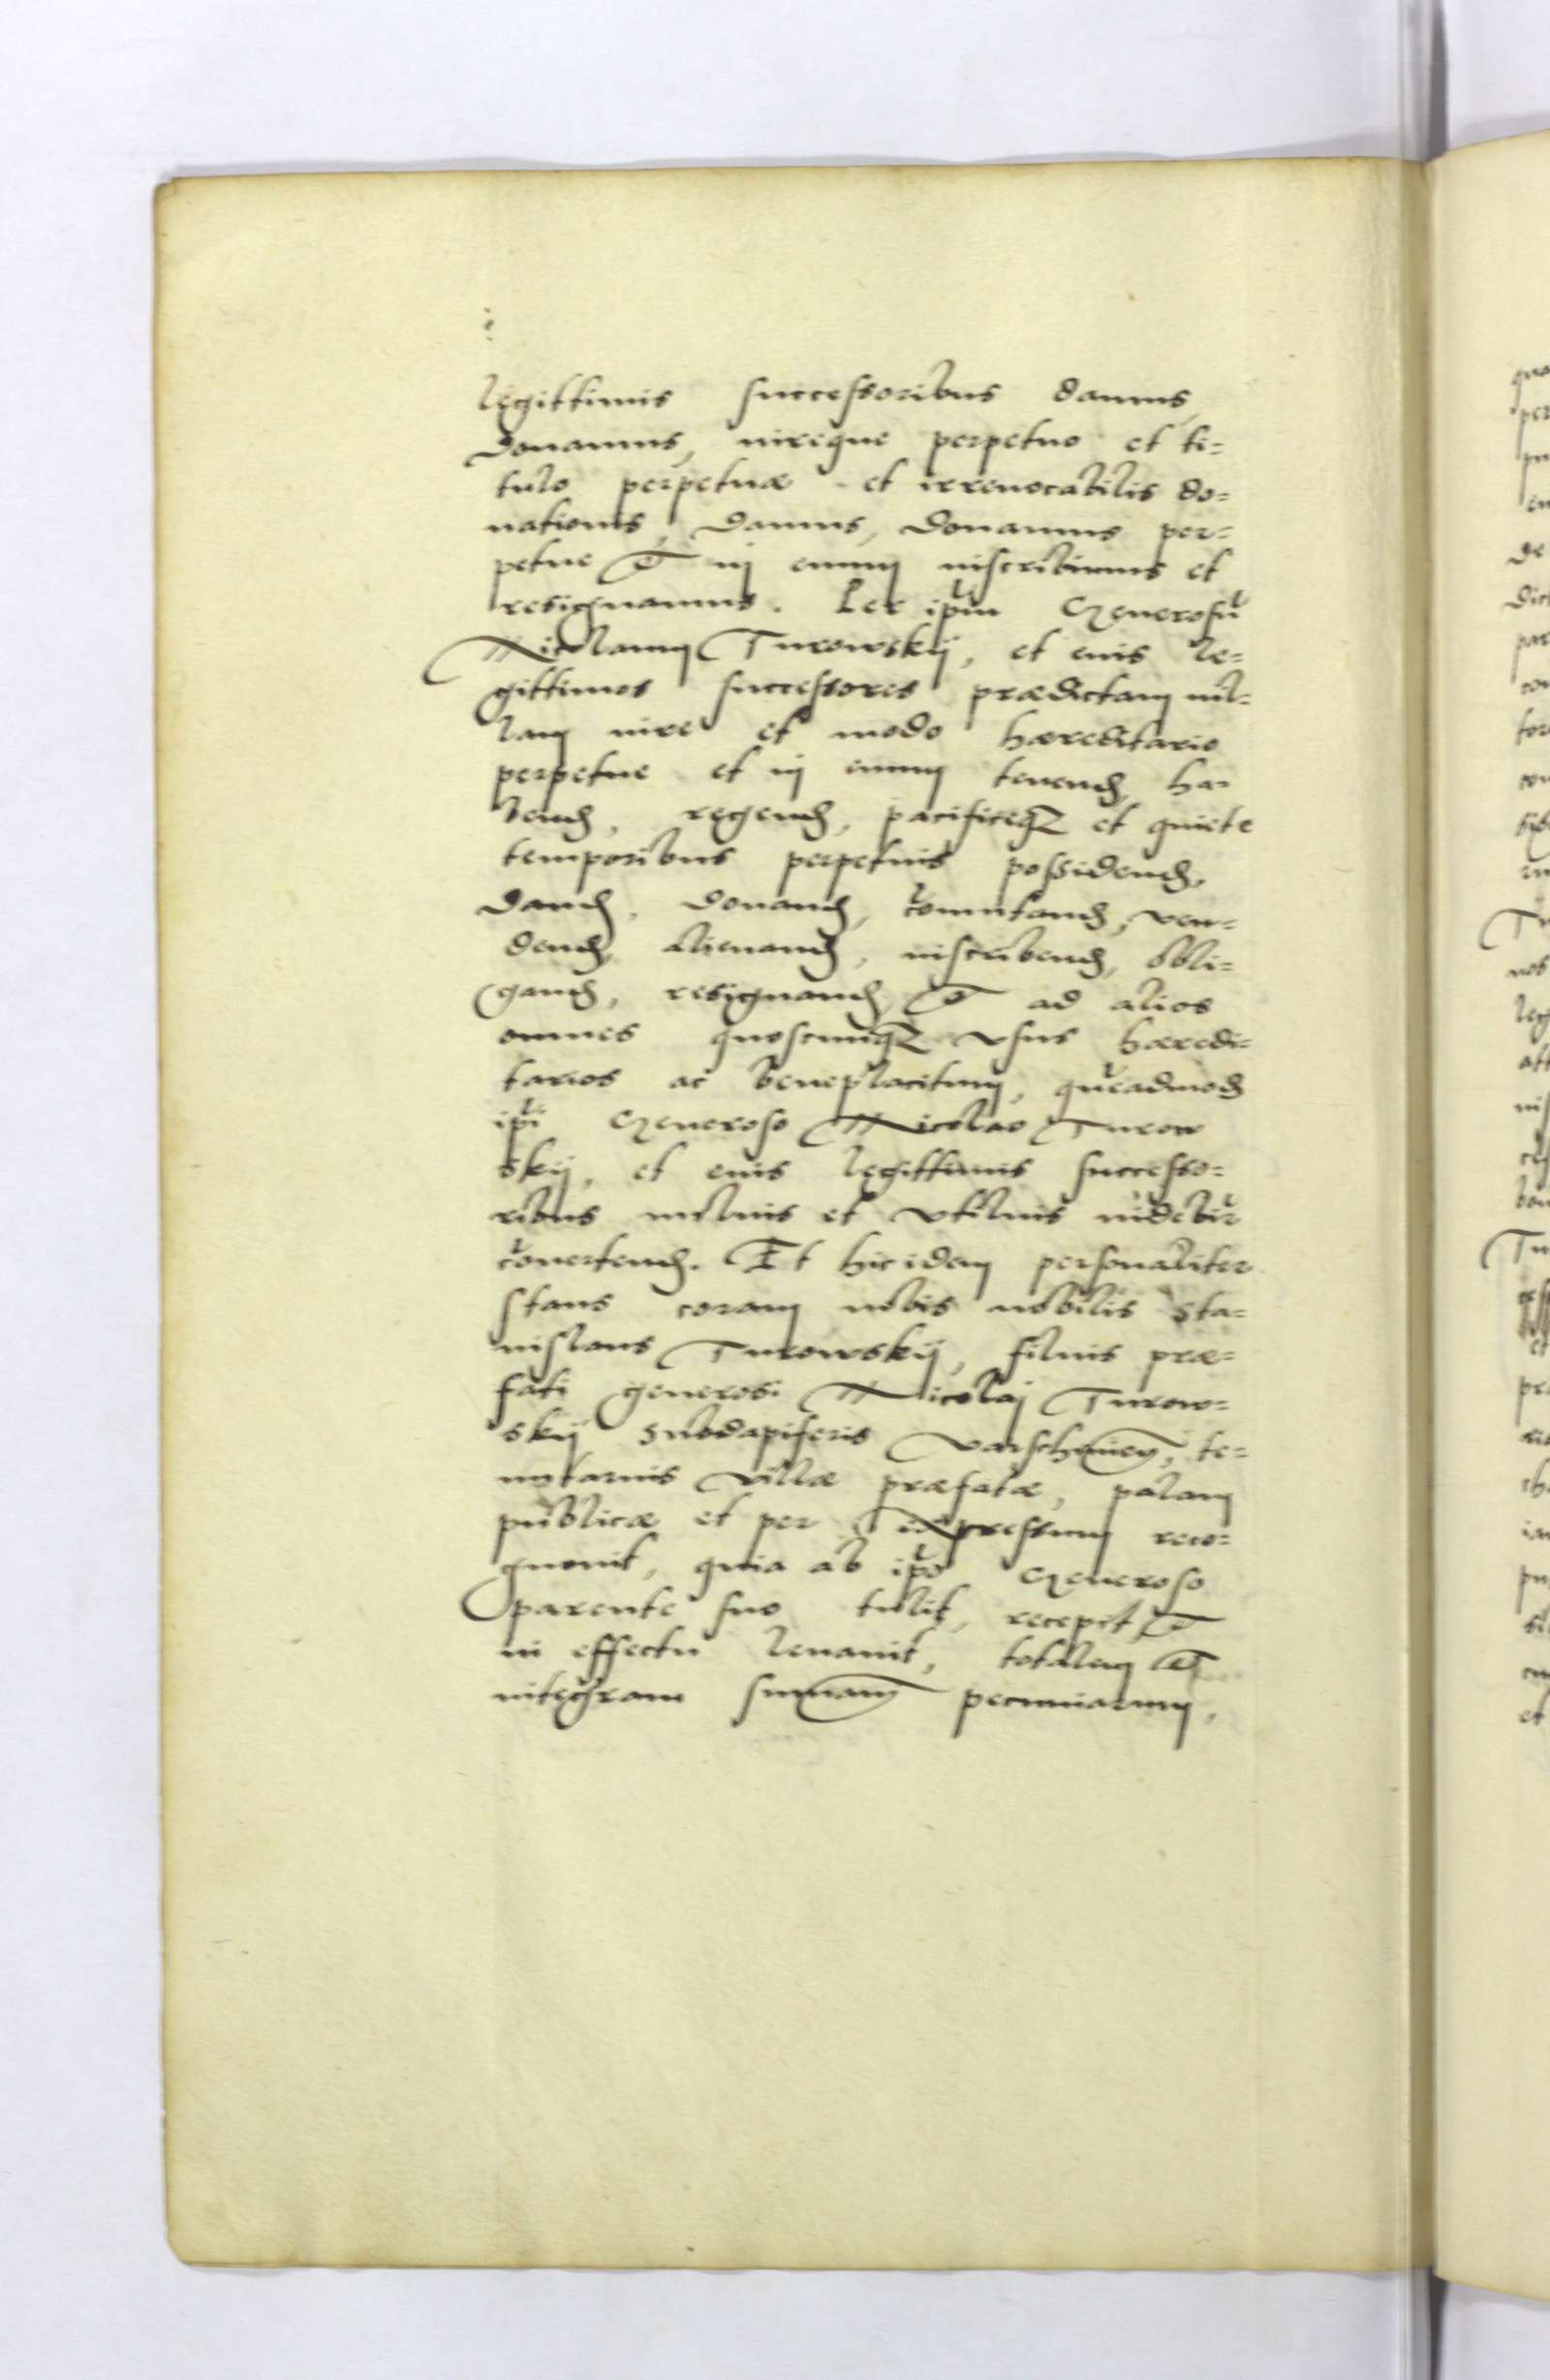 legittimis successoribus damus,
donamus, iureque perpetuo et ti=
tulo perpetuæ et irreuocabilis do=
nationis, damus, donamus per=
petue et in euum inscribimus et
resignamus. Per ipm̃ Generosũ
Nicolaum Turowskij, et eius le=
gittimos successores prædictam uil=
lam iure et modo hæreditario
perpetue et in euum tenend, ha
bend, regend, pacificeq et quiete
temporibus perpetuis possidend,
dand, donand, cõmutand, ven=
dend, alienand, inscribend, obli=
gand, resignand, et ad alios
omnes quoscumq vsus hæredi=
tarios ac beneplacitum, quẽadmod
ip̃i Generoso Nicolao Turow
skij, et eius legittimis successo=
ribus melius et vtilius uidebit̃
cõuertend. Et hic idem personaliter
stans coram nobis nobilis Sta=
nislaus Turowskij, filius præ=
fati generosi Nicolaj Turow=
skij Subdapiferis Varschouien, te=
nutarius villæ præfatæ, palam
publicæ et per expressum reco=
gnouit, quia ab ip̃o Generoso
parente suo tulit, recepit, et
in effectu leuauit, totalem et
integram summam pecuniarum,